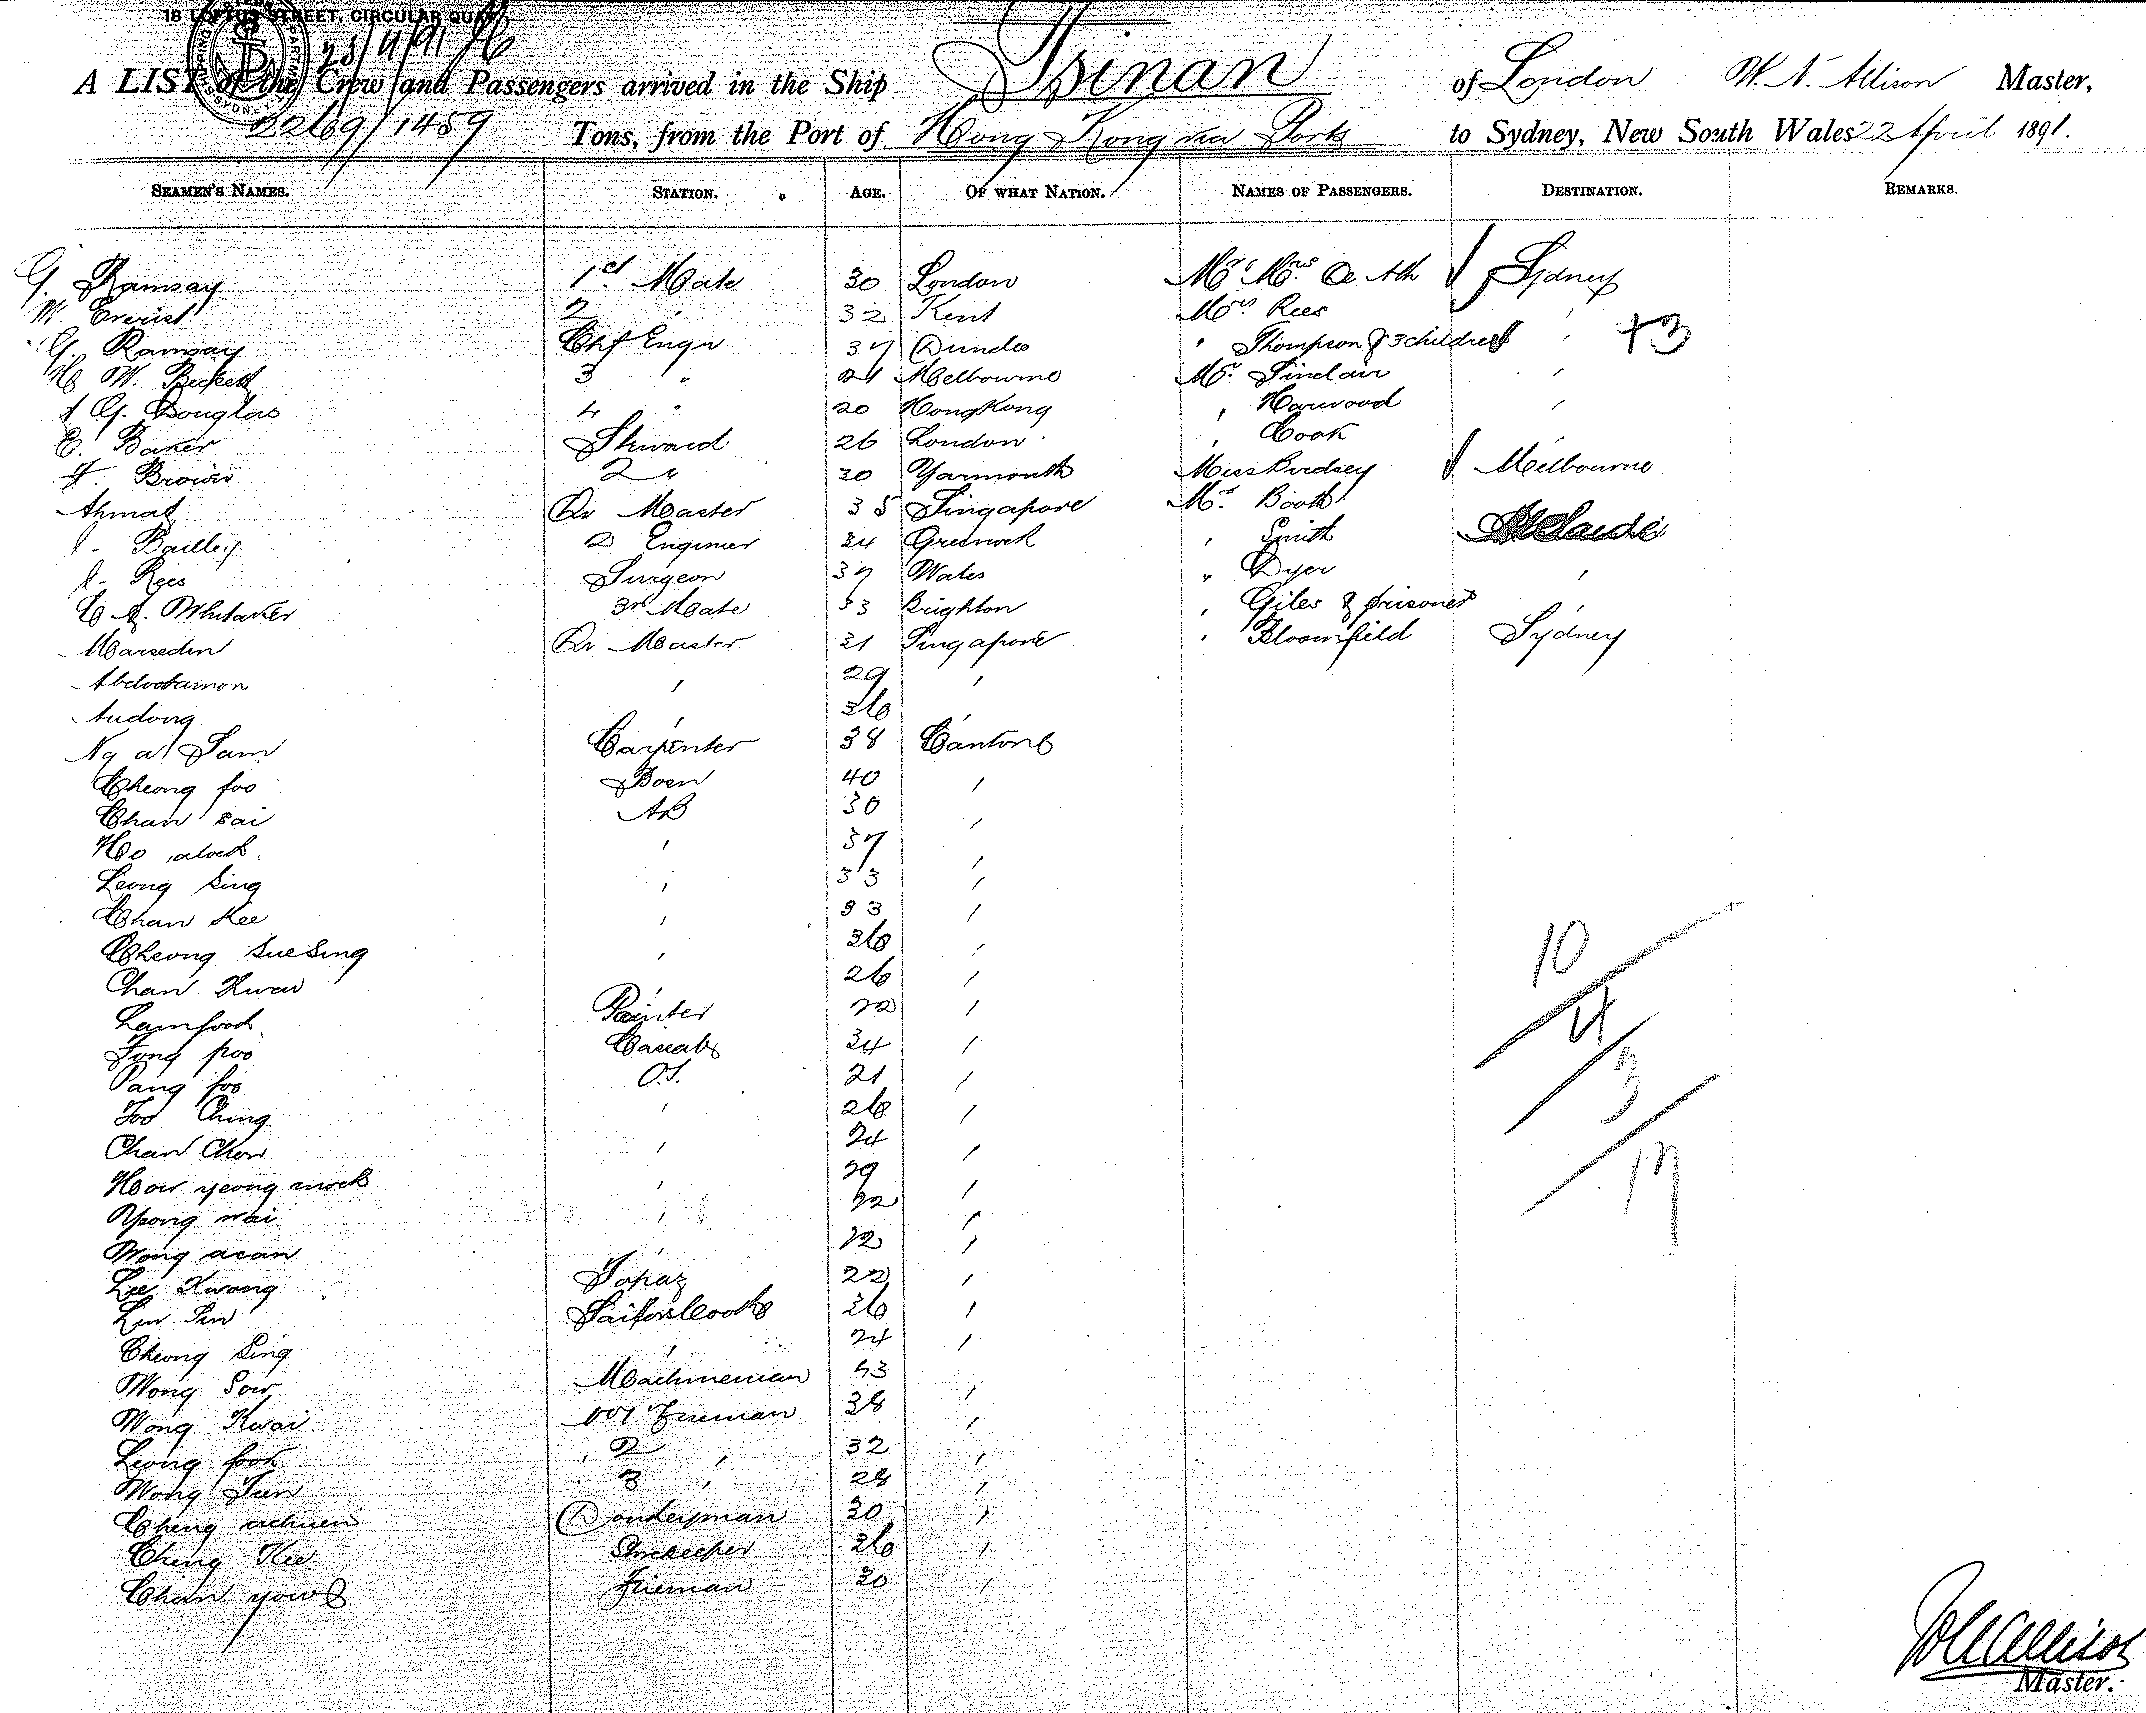 18 LOFTUS STREET, CIRCULAR QUAY
A LIST of the Crew and Passengers arrived in the Ship Tsinan of London W. N. Allison Master,
2269/1459 Tons, from the Port of Hong Kong via Ports to Sydney, New South Wales 22 April 1891.
SEAMEN'S NAMES. STATION. AGE. OF WHAT NATION. NAMES OF PASSENGERS. DESTINATION. REMARKS.
G. Ramsay 1st Mate 30 London Mr & Mrs De Ath Sydney
W. 2 " 32 Kent Mrs Rees
G. Ramsay Chf Engr 37 Dundee " Thompson & 3 children ' +3
W. Beckett 3 " 21 Melbourne Mr. Sinclair '
G. Douglas 4 " 20 Hong Kong ' Harwood '
E. Baker Steward 26 London ' Cook
F. Brown 2 " 20 Yarmouth Miss Birdsey Melbourne
Ahmat Qr Master 35 Singapore Mr. Booth
Bailley 2 Engineer 24 Greenock ' Smith Adelaide
Rees Surgeon 37 Wales " Dyer '
C. A. Whitaker 3rd Mate 33 Brighton ' Giles & prisoner '
Marsedin Qr Master 31 Singapore ' Bloomfield Sydney
' 29 '
Audong ' 36 '
Ng a Sam Carpenter 38 Canton
Cheong foo Bosn 40 '
Chan sai AB 30 '
Ho ' 37 '
Leong Sing ' 33 '
Chan Kee ' 33 '
Cheong Sue Sing ' 36 '
Chan Kwai ' 26 '
Lamfook Painter 22 '
Fong poo 34 '
Pang foo O.S. 21 '
Foo Ching ' 26 '
Chan Chow ' 24 '
How yeong ' 29 '
wai ' 22 '
Wong acan ' 22 '
Lee Kwong Topaz 22 '
Sailors Cook 36 '
Cheong Sing ' 24 '
Wong Sow 43 '
Wong Kwai No1 Fireman 38 '
Leong fook " 2 ' 32 '
Wong " 3 ' 28 '
Cheng Donkeyman 30 '
Ching Kee Storekeeper 36 '
Chan yow Fireman 30 '
10
4
3
17
Master.